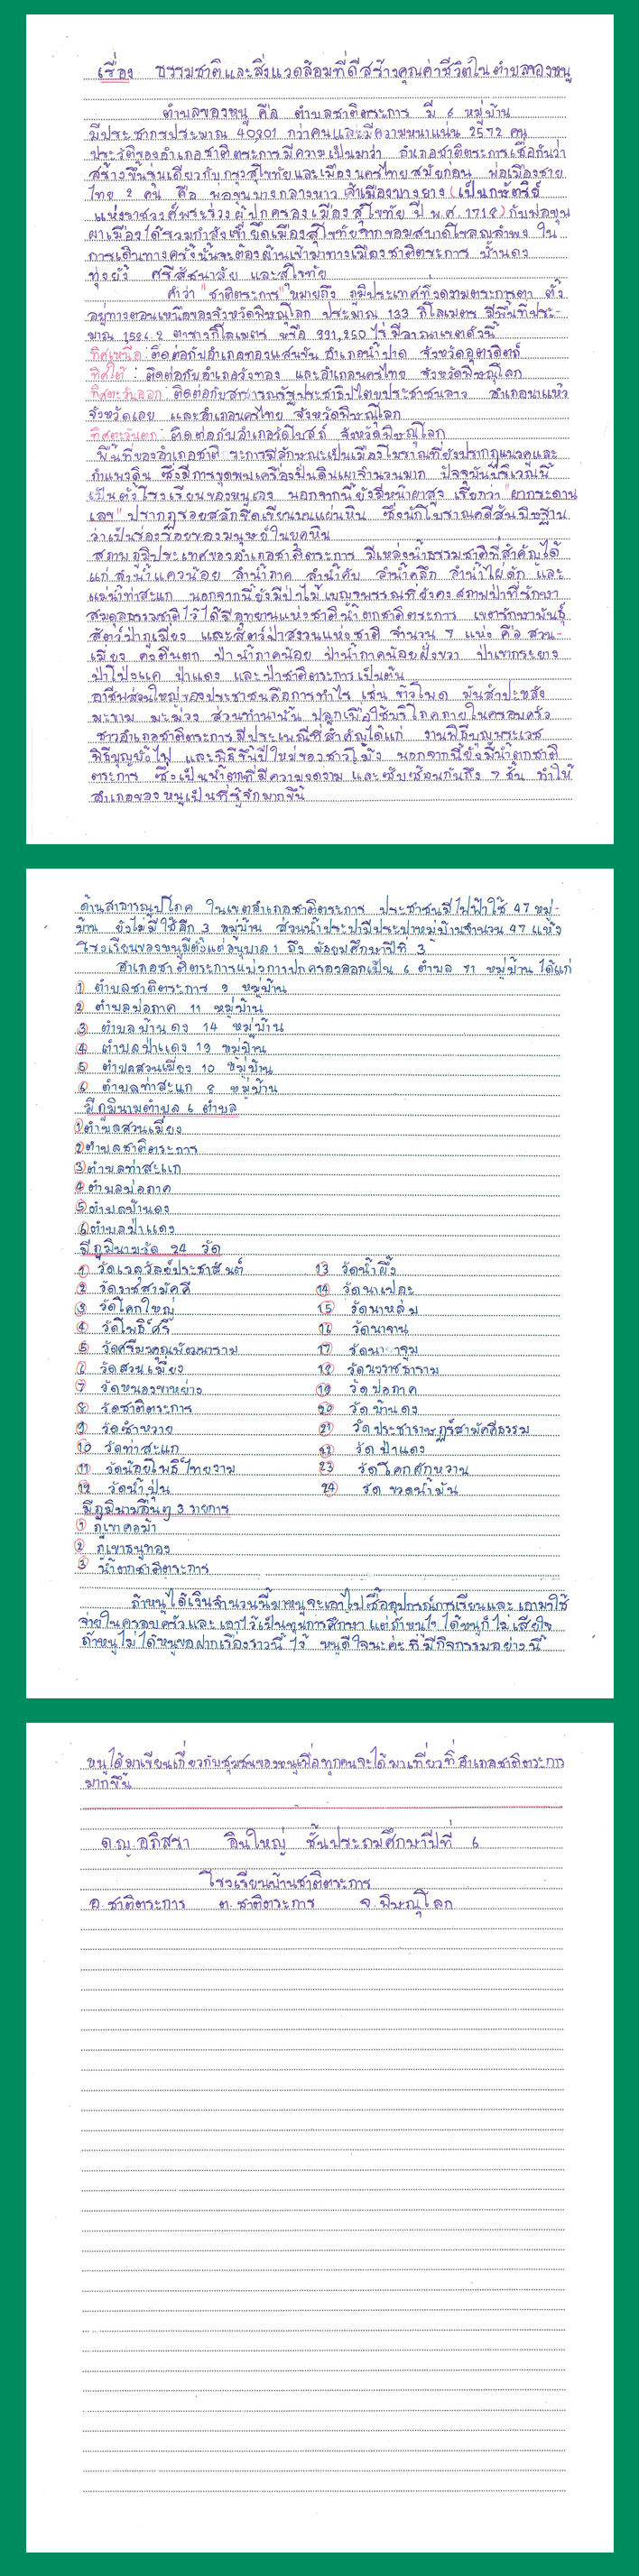 เรื่อง ธรรมชาติและสิ่งแวดล้อมที่ดีสร้างคุณค่าชีวิตในตำบลของหนู
ตำบลของหนู คือ ตำบลชาติตระการ มี 6 หมู่บ้าน
มีประชากรประมาณ 40,801 กว่าคนและมีความหนาแน่น 25.72 คน
ประวัติของอำเภอชาติตระการมีความเป็นมาว่า อำเภอชาติตระการเชื่อกันว่า
สร้างขึ้นรุ่นเดียวกับกรุงสุโขทัยและเมืองนครไทย สมัยก่อน พ่อเมืองชาย
ไทย 2 คน คือ พ่อขุนบางกลางหาว เจ้าเมืองบางยาง (เป็นกษัตริย์
แห่งราชวงศ์พระร่วงผู้ปกครองเมืองสุโขทัย ปี พ.ศ. 1718) กับพ่อขุน
ผาเมืองได้รวมกำลังเข้ายึดเมืองสุโขทัยจากขอมสบาดโขลญลำพง ใน
การเดินทางครั้งนั้นจะต้องผ่านเข้ามาทางเมืองชาติตระการ บ้านดง
ทุ่งยั้ง ศรีสัชนาลัย และสุโขทัย
คำว่า "ชาติตระการ" หมายถึง ภูมิประเทศที่งดงามตระการตา ตั้ง
อยู่ทางตอนเหนือของจังหวัดพิษณุโลก ประมาณ 133 กิโลเมตร มีพื้นที่ประ-
มาณ 1586.2 ตารางกิโลเมตร หรือ 991,250 ไร่ มีอาณาเขตดังนี้
ทิศเหนือ : ติดต่อกับอำเภอทองแสนขัน อำเภอน้ำปาด จังหวัดอุตรดิตถ์
ทิศใต้ : ติดต่อกับอำเภอวังทอง และอำเภอนครไทย จังหวัดพิษณุโลก
ทิศตะวันออก : ติดต่อกับสาธารณรัฐประชาธิปไตยประชาชนลาว อำเภอนาแห้ว
จังหวัดเลย และอำเภอนครไทย จังหวัดพิษณุโลก
ทิศตะวันตก : ติดต่อกับอำเภอวัดโบสถ์ จังหวัดพิษณุโลก
พื้นที่ของอำเภอชาติตระการมีลักษณะเป็นเมืองโบราณที่ยังปรากฏแนวคูและ
กำแพงดิน ซึ่งมีการขุดพบเครื่องปั้นดินเผาจำนวนมาก ปัจจุบันบริเวณนี้
เป็นตั้งโรงเรียนของหนูเอง นอกจากนี้ยังมีหน้าผาสูง เรียกว่า "ผากระดาน
เลข" ปรากฏรอยสลักขีดเขียนบนแผ่นหิน ซึ่งนักโบราณคดีสันนิษฐาน
ว่าเป็นร่องรอยของมนุษย์ในยุคหิน
สภาพภูมิประเทศของอำเภอชาติตระการ มีแหล่งน้ำธรรมชาติที่สำคัญได้
แก่ ลำน้ำแควน้อย ลำน้ำภาค ลำน้ำคับ ลำน้ำคลึก ลำน้ำไผ่ดัก และ
แม่น้ำท่าสะแก นอกจากนี้ยังมีป่าไม้เบญจพรรณที่ยังคงสภาพป่าที่รักษา
สมดุลธรรมชาติไว้ได้มีอุทยานแห่งชาติน้ำตกชาติตระการ เขตรักษาพันธุ์
สัตว์ป่าภูเมี่ยง และสัตว์ป่าสงวนแห่งชาติ จำนวน 7 แห่ง คือ สวน-
เมี่ยง ดงตีนตก ป่าน้ำภาคน้อย ป่าน้ำภาคน้อยฝั่งขวา ป่าเขากระยาง
ป่าโปงแค ป่าแดง และป่าชาติตระการเป็นต้น
อาชีพส่วนใหญ่ของประชาชนคือการทำไร่ เช่น ข้าวโพด มันสำปะหลัง
มะขาม มะม่วง ส่วนทำนานั้น ปลูกเพื่อใช้บริโภคภายในครอบครัว
ชาวอำเภอชาติตระการมีประเพณีที่สำคัญได้แก่ งานพิธีบุญพระเวส
พิธีบุญบั้งไฟ และพิธีขึ้นปีใหม่ของชาวไม้งั นอกจากนี้ยังมีน้ำตกชาติ
ตระการ ซึ่งเป็นน้ำตกที่มีความงดงาม และซับซ้อนกันถึง 7 ชั้น ทำให้
อำเภอของหนูเป็นที่รู้จักมากขึ้น
ด้านสาธารณูปโภค ในเขตอำเภอชาติตระการ ประชาชนมีไฟฟ้าใช้ 47 หมู่-
บ้าน ยังไม่มีใช้อีก 3 หมู่บ้าน ส่วนน้ำประปามีประปาหมู่บ้านจำนวน 47 แห่ง
โรงเรียนของหนูมีตั้งแต่อนุบาล 1 ถึง มัธยมศึกษาปีที่ 3
อำเภอชาติตระการแบ่งการปกครองออกเป็น 6 ตำบล 71 หมู่บ้าน ได้แก่
1 ตำบลชาติตระการ 9 หมู่บ้าน
2 ตำบลบ่อภาค 11 หมู่บ้าน
3 ตำบลบ้านดง 14 หมู่บ้าน
4 ตำบลป่าแดง 19 หมู่บ้าน
5 ตำบลสวนเมี่ยง 10 หมู่บ้าน
6 ตำบลท่าสะแก 8 หมู่บ้าน
มีภูมินามตำบล 6 ตำบล
1 ตำบลสวนเมี่ยง
2 ตำบลชาติตระการ
3 ตำบลท่าสะแก
4 ตำบลบ่อภาค
5 ตำบลบ้านดง
6 ตำบลป่าแดง
มีภูมินามวัด 24 วัด
1 วัดเวฬุวัลย์ประชาสันต์
2 วัดราชสามัคคี
3 วัดโคกใหญ่
4 วัดโพธิ์ศรี
5 วัดศรีมงคุณพัฒนาราม
6 วัดสวนเมี่ยง
7 วัดหนองขาหย่าง
8 วัดชาติตระการ
9 วัดซำหวาย
10 วัดท่าสะแก
11 วัดน้อยโพธิ์ไทยงาม
12 วัดน้ำปุ่น
13 วัดน้ำผึ้ง
14 วัดนาเปอะ
15 วัดนาหล่ม
16 วัดนาจาน
17 วัดนาจูม
18 วัดนวราชธาราม
19 วัดบ่อภาค
20 วัดบ้านดง
21 วัดประชาราษฎร์สามัคคีธรรม
22 วัดป่าแดง
23 วัดโคกผักหวาน
24 วัดขวดน้ำมัน
มีภูมินามอื่นๆ 3 รายการ
1 ภูเขาคอม้า
2 ภูเขาธนูทอง
3 น้ำตกชาติตระการ
ถ้าหนูได้เงินจำนวนนี้มาหนูจะเอาไปซื้ออุปกรณ์การเรียนและเอามาใช้
จ่ายในครอบครัวและเอาไว้เป็นทุนการศึกษา แต่ถ้าหนูไม่ได้หนูก็ไม่เสียใจ
ถ้าหนูไม่ได้หนูขอฝากเรื่องราวนี้ไว้ หนูดีใจนะค่ะที่มีกิจกรรมอย่างนี้
หนูได้มาเขียนเกี่ยวกับชุมชนของหนูเพื่อทุกคนจะได้มาเที่ยวที่อำเภอชาติตระการ
มากขึ้น
ด.ญ.อภิสรา อินใหญ่ ชั้นประถมศึกษาปีที่ 6
โรงเรียนบ้านชาติตระการ
อ.ชาติตระการ ต.ชาติตระการ จ.พิษณุโลก